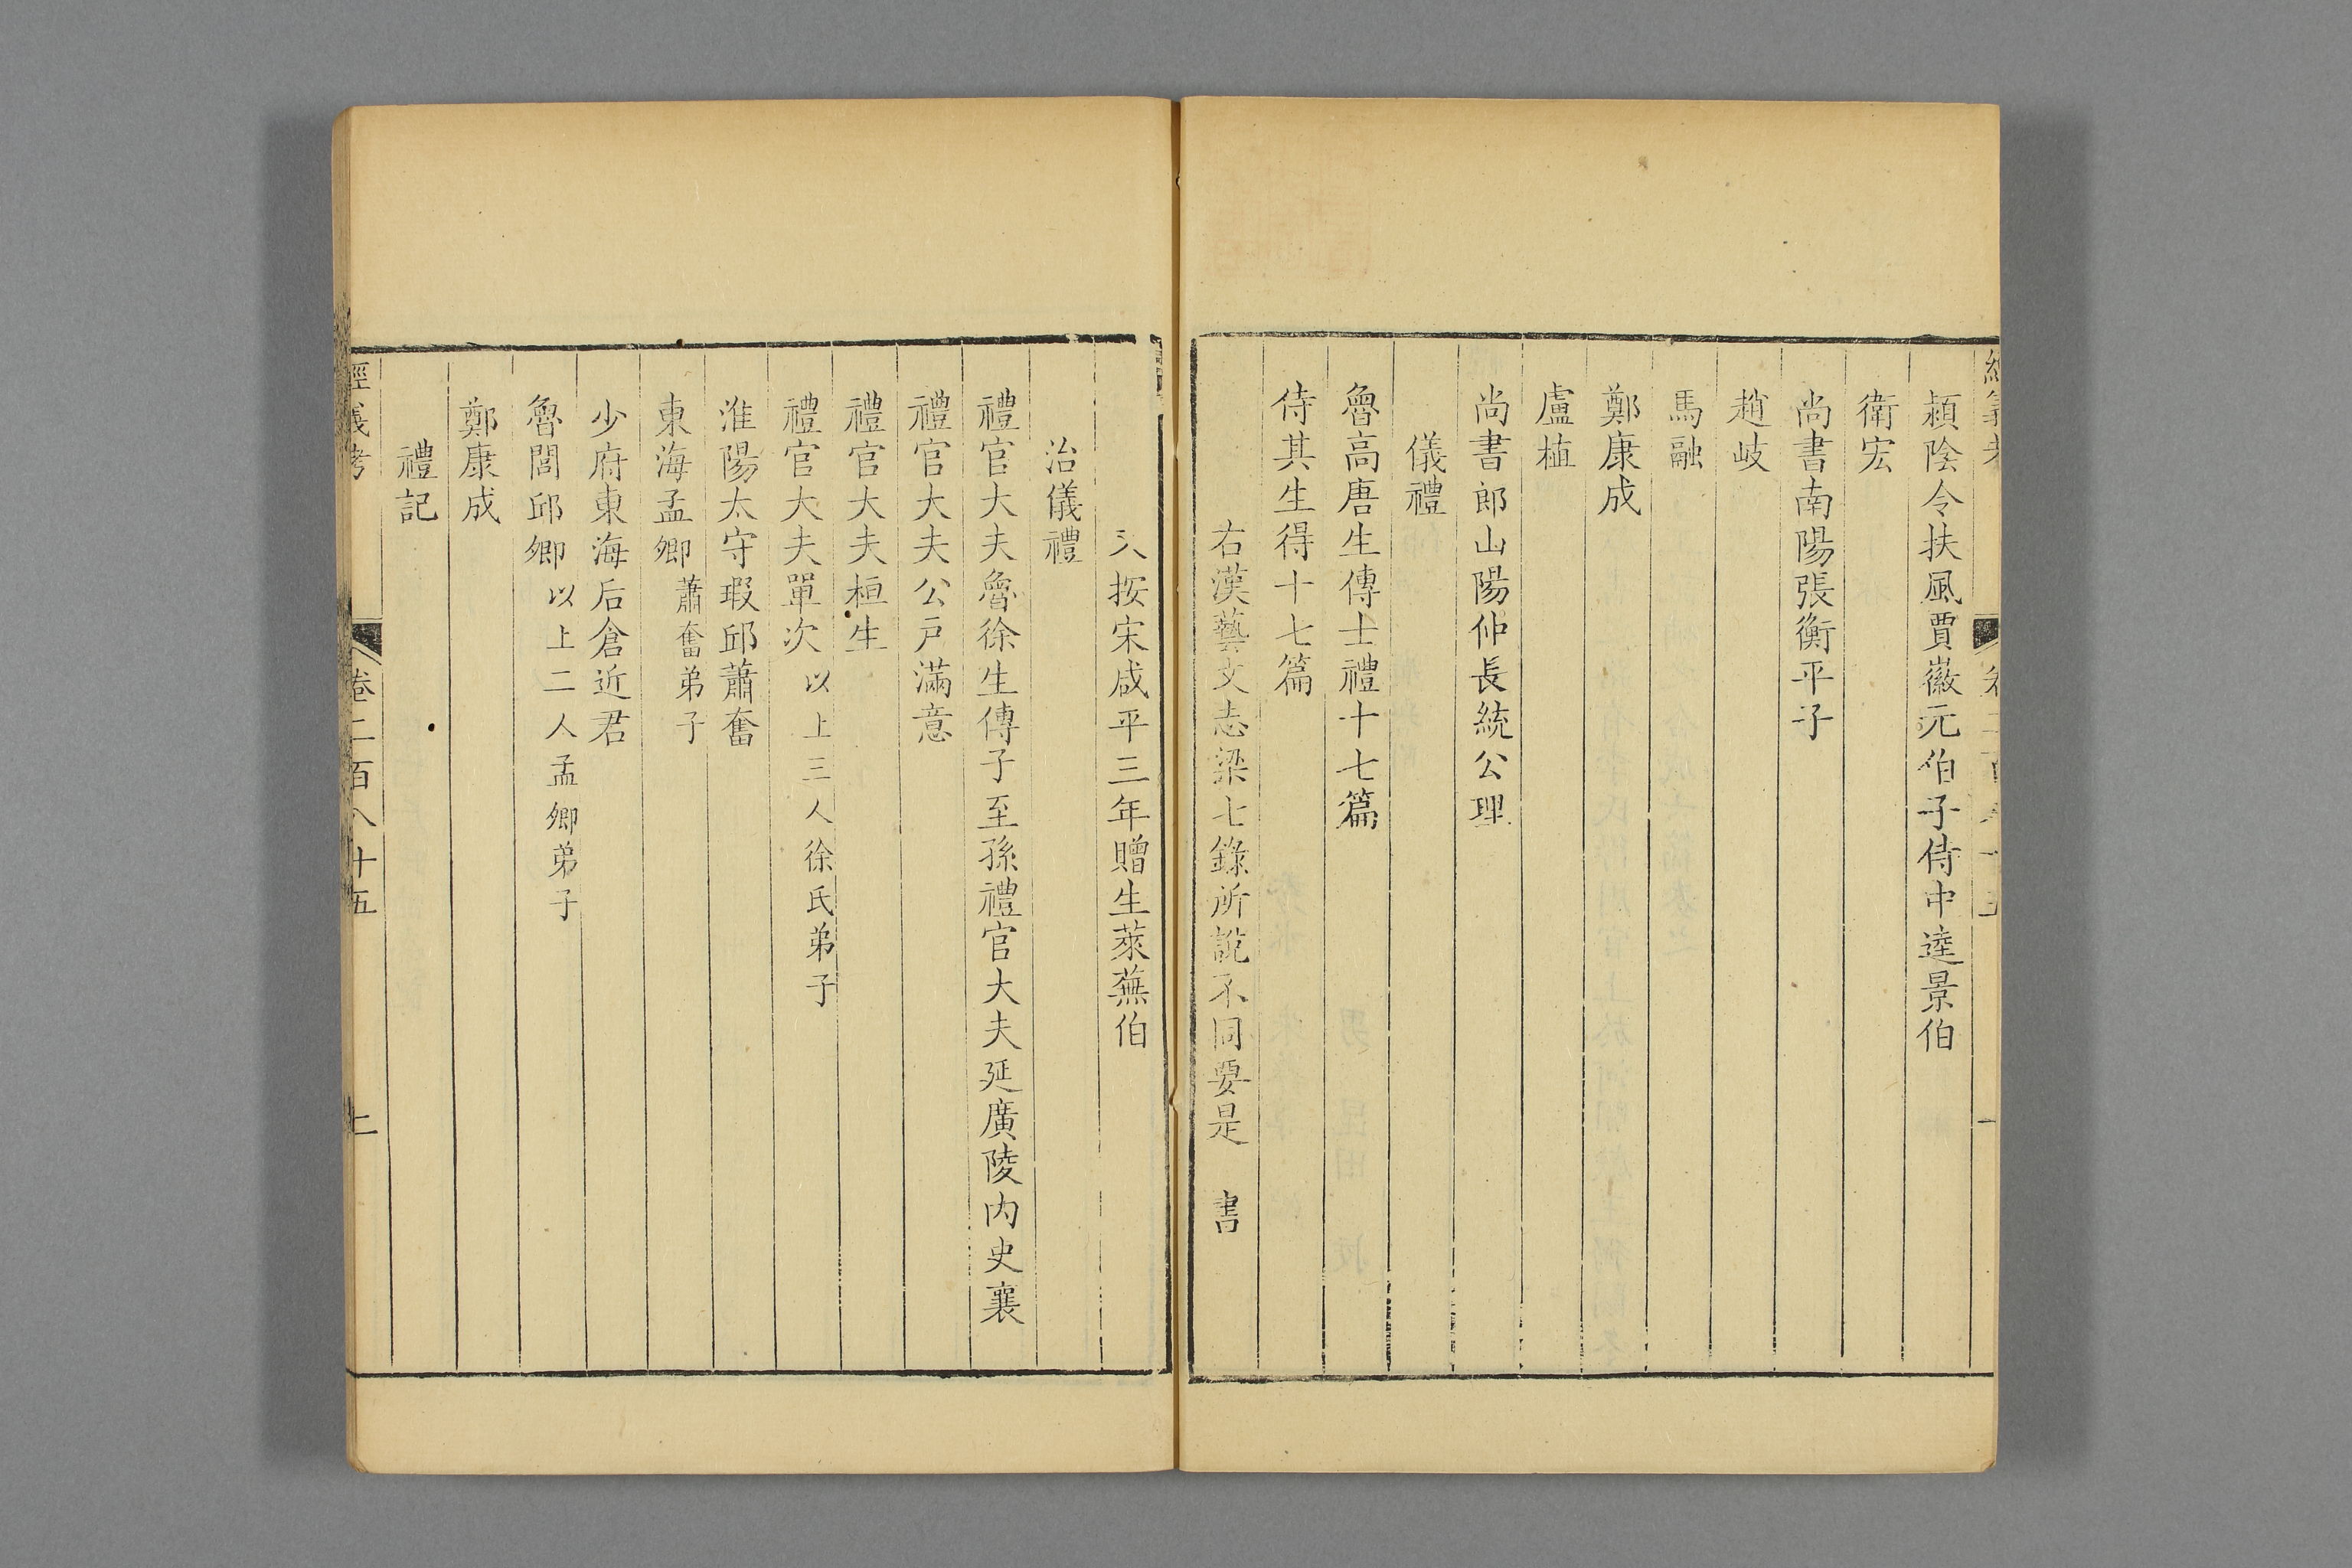 潁陰令扶風賈徽元伯子侍中逵景伯
衛宏
尚書南陽張衡平子
趙岐
馬融
鄭康成
盧植
尚書郎山陽仲長統公理
儀禮
魯高唐生傳士禮十七篇
侍其生得十七篇
右漢藝文志梁七錄所說不同要是 書
又按宋咸平三年贈生萊蕪伯
治儀禮
禮官大夫魯徐生傳子至孫禮官大夫延廣陵內史襄
禮官大夫公戶滿意
禮官大夫桓生
禮官大夫單次以上三人徐氏弟子
淮陽太守瑕邱蕭奮
東海孟卿蕭奮弟子
少府東海后倉近君
魯閭邱卿以上二人孟卿弟子
鄭康成
禮記
經義考 卷二百八十五 上